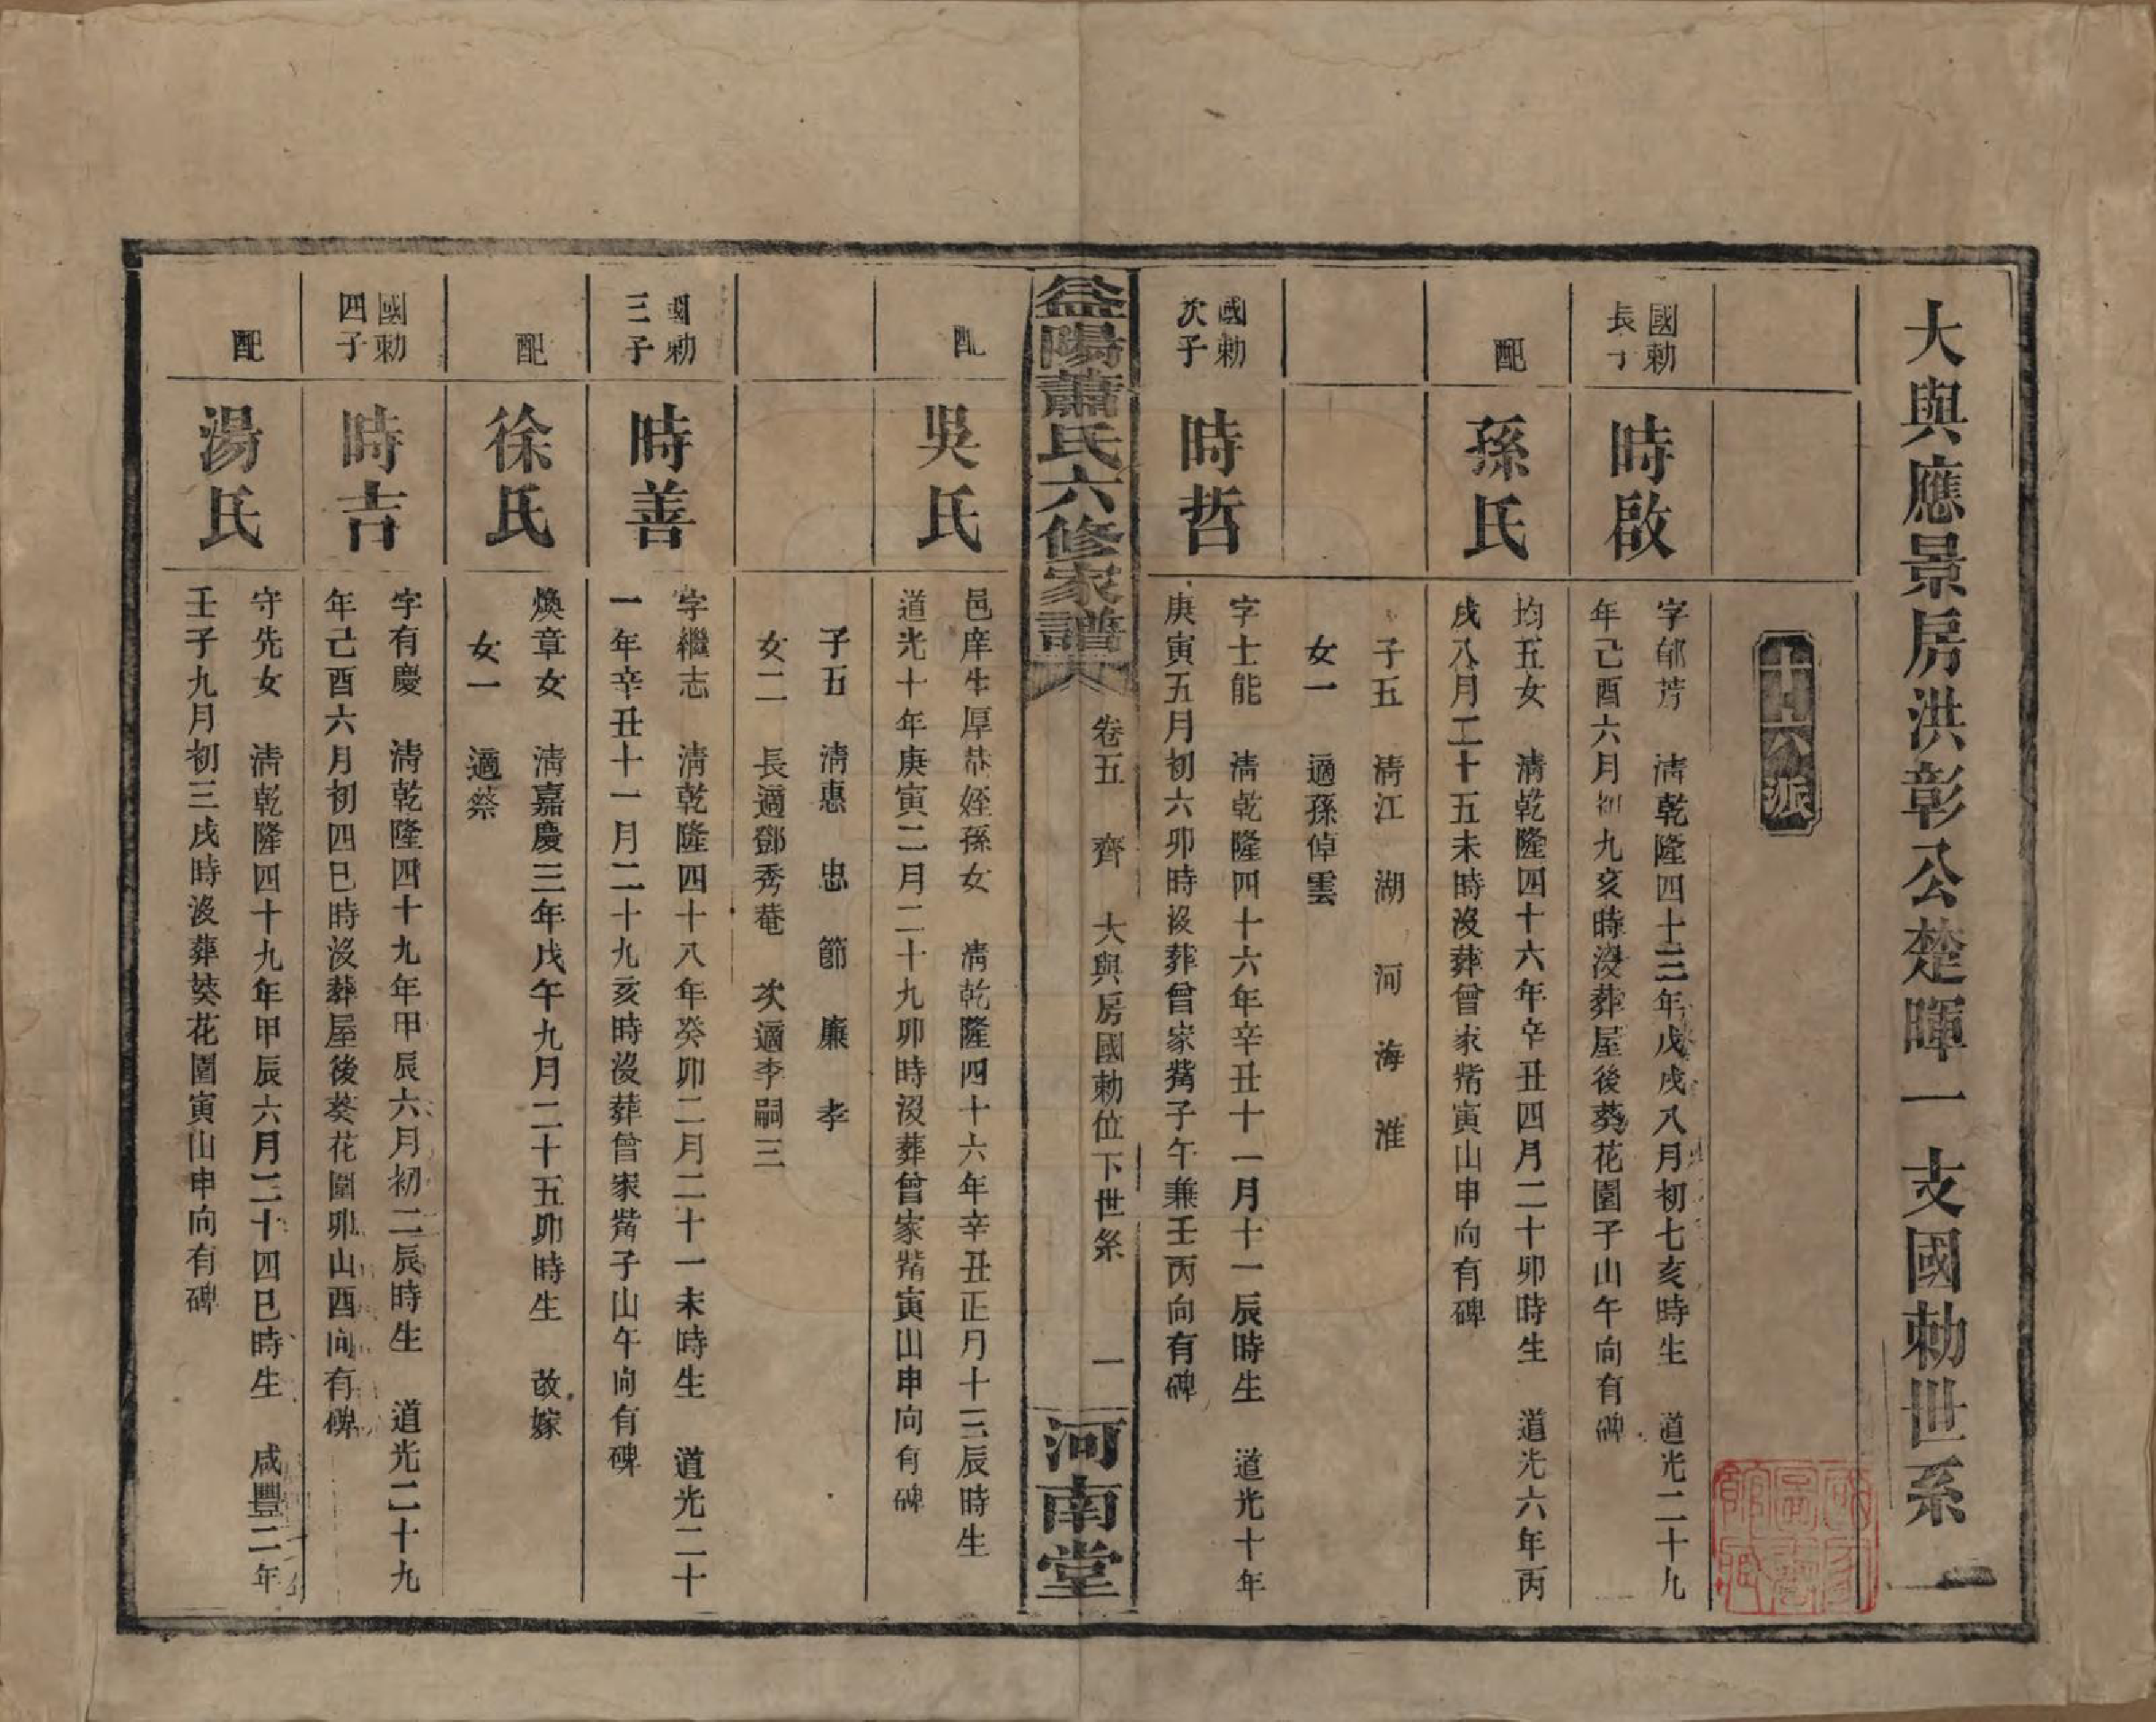 大與應景房洪彰公楚暉一支國勅世系
十六派
國勅
長子
時啟
字郁芳　清乾隆四十三年戊戌八月初七亥時生　道光二十九
年己酉六月初九亥時沒葬屋後葵花園子山午向有碑
配
孫氏
均五女　清乾隆四十六年辛丑四月二十卯時生　道光六年丙
戌八月二十五未時沒葬曾家㟸寅山申向有碑
子五　清江　湖　河　海　淮
女一　適孫倬雲
國勅
次子
時哲
字士能　清乾隆四十六年辛丑十一月十一辰時生　道光十年
庚寅五月初六卯時沒葬曾家㟸子午兼壬丙向有碑
益陽蕭氏六修家譜
卷五　齊　大與房國勅位下世系　一
河南堂
配
吳氏
邑庠生厚恭姪孫女　清乾隆四十六年辛丑正月十三辰時生
道光十年庚寅二月二十九卯時沒葬曾家㟸寅山申向有碑
子五　清惠　忠　節　廉　孝
女二　長適鄧秀菴　次適李嗣三
國勅
三子
時善
字繼志　清乾隆四十八年癸卯二月二十一未時生　道光二十
一年辛丑十一月二十九亥時沒葬曾家㟸子山午向有碑
配
徐氏
煥章女　清嘉慶三年戊午九月二十五卯時生　改嫁
女一　適蔡
國勅
四子
時吉
字有慶　清乾隆四十九年甲辰六月初二辰時生　道光二十九
年己酉六月初四巳時沒葬屋後葵花園卯山酉向有碑
配
湯氏
守先女　清乾隆四十九年甲辰六月二十四巳時生　咸豐二年
壬子九月初三戌時沒葬葵花園寅山申向有碑